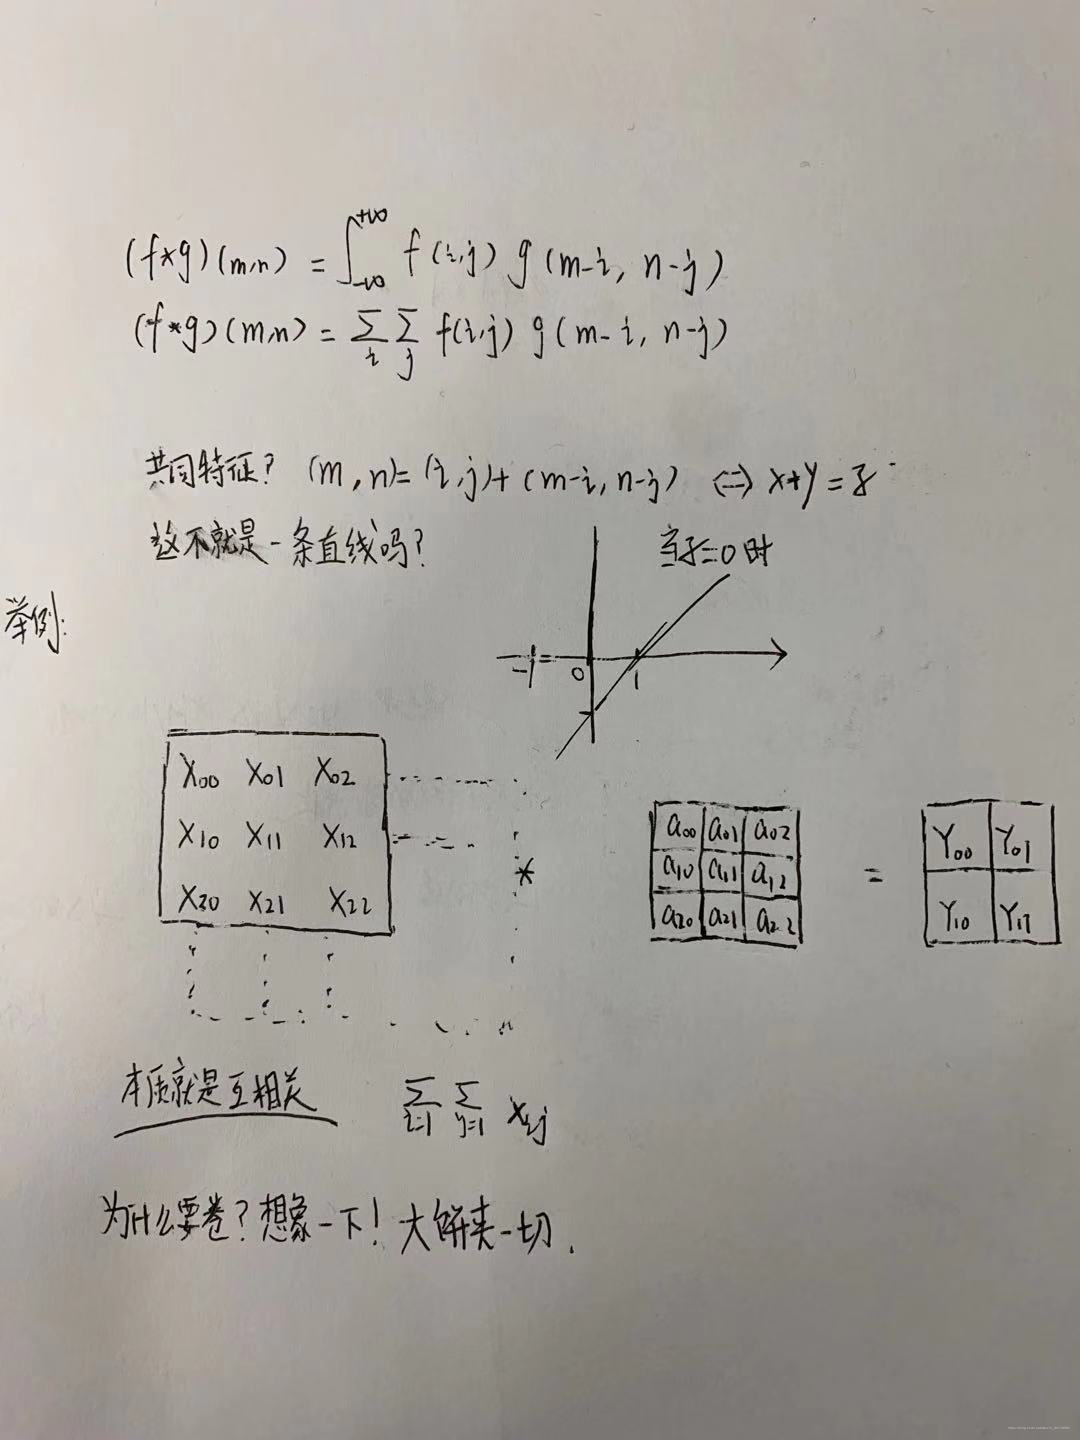 (f*g)(m,n) = ∫_{-∞}^{+∞} f(i,j) g(m-i, n-j)
(f*g)(m,n) = Σ_i Σ_j f(i,j) g(m-i, n-j)
共同特征? (m,n)=(i,j)+(m-i,n-j) ⇔ x+y=z
这不就是一条直线吗?
当z=0时
举例:
-1 0 1
X00 X01 X02
X10 X11 X12
X20 X21 X22
*
a00 a01 a02
a10 a11 a12
a20 a21 a22
=
Y00 Y01
Y10 Y11
本质就是互相关 Σ_{i=1} Σ_{j=1} x_{ij}
为什么要卷?想象一下!大饼夹一切.